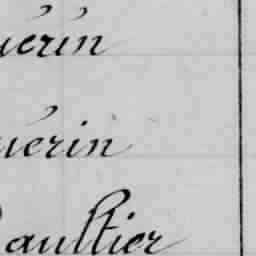 uérin
uérin
Gaultier